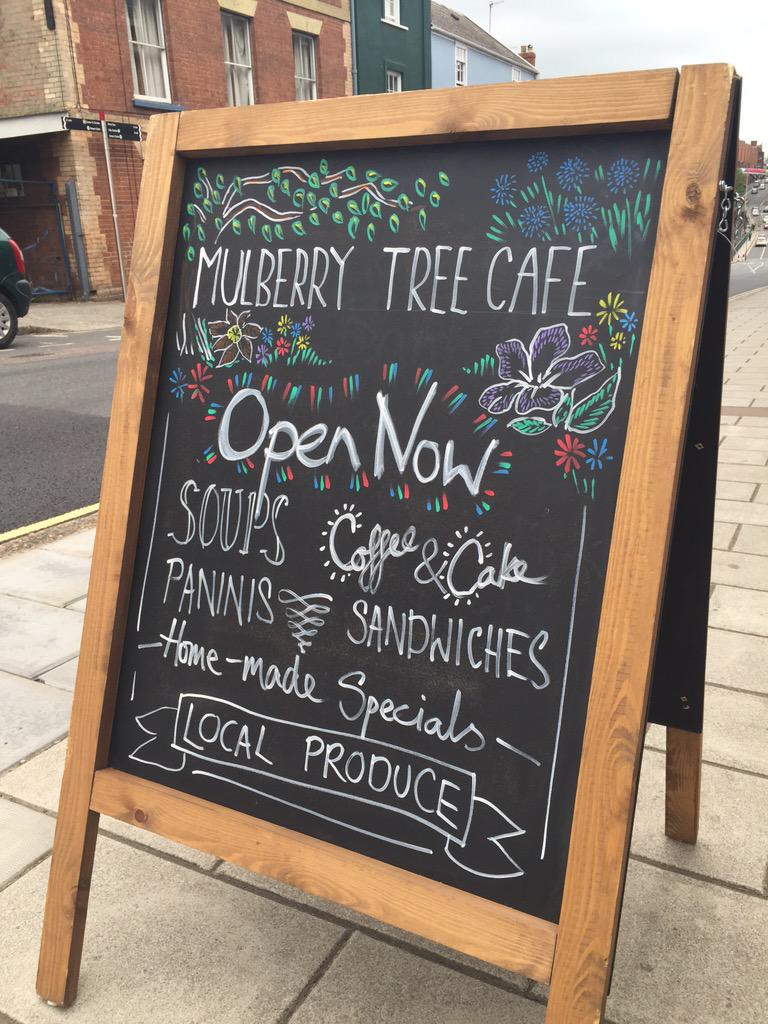 MULBERRY TREE CAFE
Open Now
SOUPS Coffee & Cake
PANINIS SANDWICHES
-Home-made Specials-
LOCAL PRODUCE